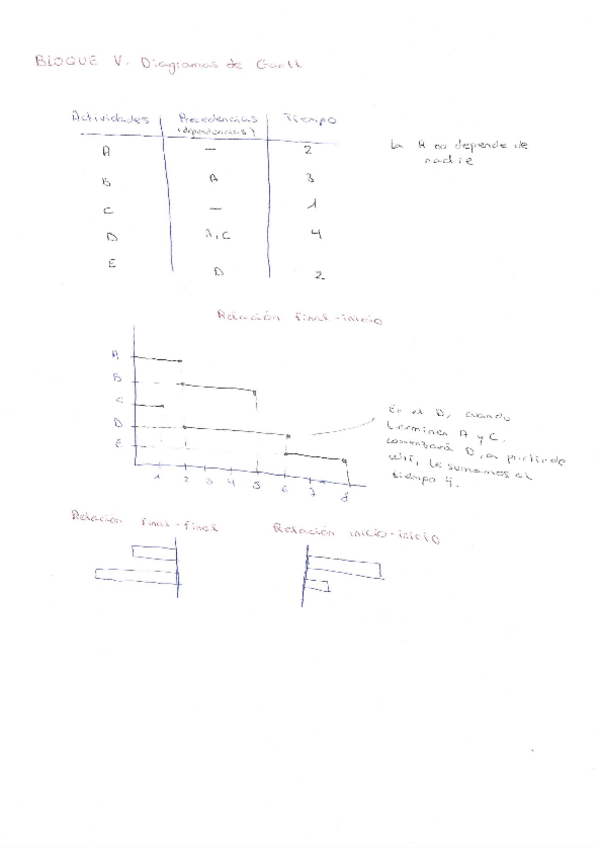 BLOQUE V. Diagramas de Gantt
Actividades Precedencias Tiempo
(dependencias)
A — 2
B A 3
C — 1
D A, C 4
E D 2
La A no depende de
nadie
Relación final-inicio
A
B
C
D
E
1 2 3 4 5 6 7 8
En el D, cuando
terminen A y C.
comenzará D, a partir de
ahí, le sumamos el
tiempo 4.
Relación final-final
Relación inicio-inicio